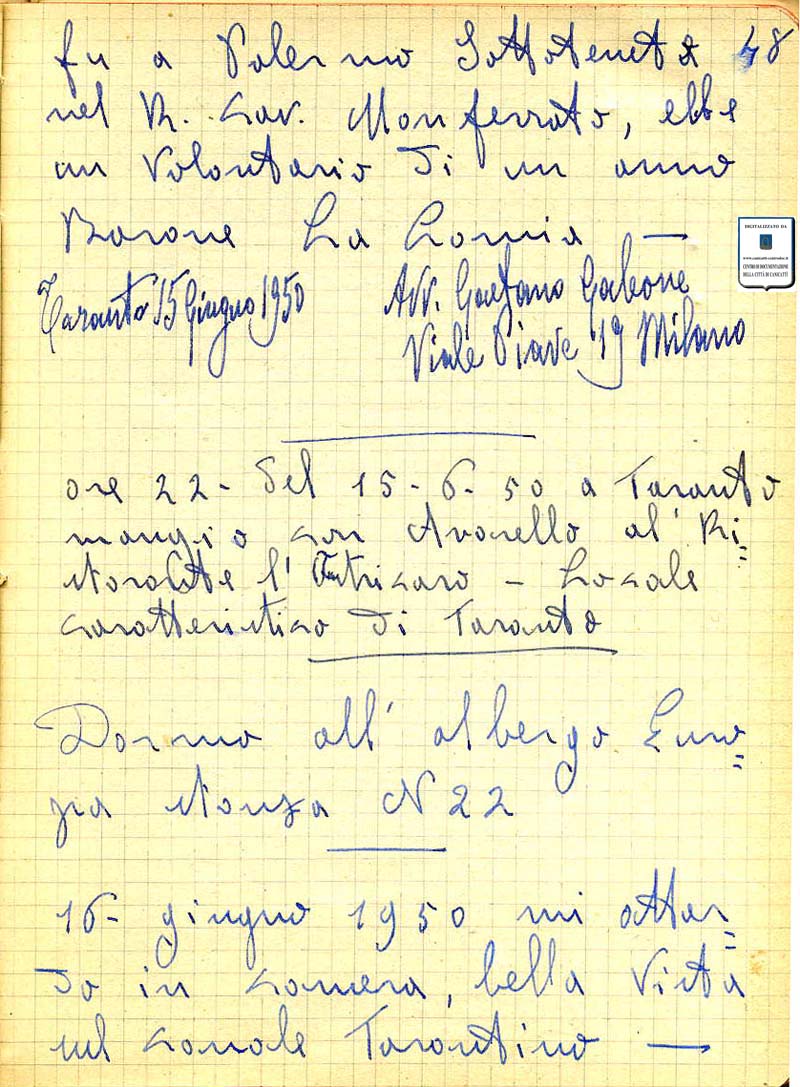 fu a Palermo Sottotenete 48
nel R. Cav. Monferrato, ebbe
un Volontario di un anno
Barone La Lomia —
DIGITALIZZATO DA
www.canicatti-centrodoc.it
CENTRO DI DOCUMENTAZIONE
DELLA CITTÀ DI CANICATTÌ
Taranto 15 Giugno 1950
Avv. Gaetano
Viale Piave 19 Milano
ore 22 - del 15-6-50 a Taranto
mangio con Avarello al' Ri=
storante l' - Locale
caratteristico di Taranto
Dormo all' albergo Euro=
pa stanza N 22
16- giugno 1950 mi affac=
cio in camera, bella Vista
sul canale Tarantino —